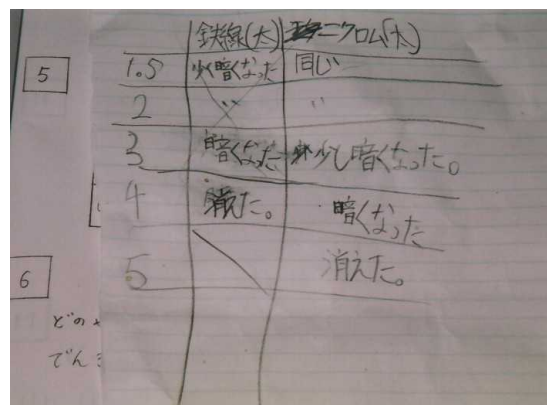 鉄線(太) ニクロム(太)
5
1.5 少く暗くなった 同じ
2 〃 〃
3 暗くなった 少し暗くなった。
4 消えた。 暗くなった
5 消えた。
6
どの
でん